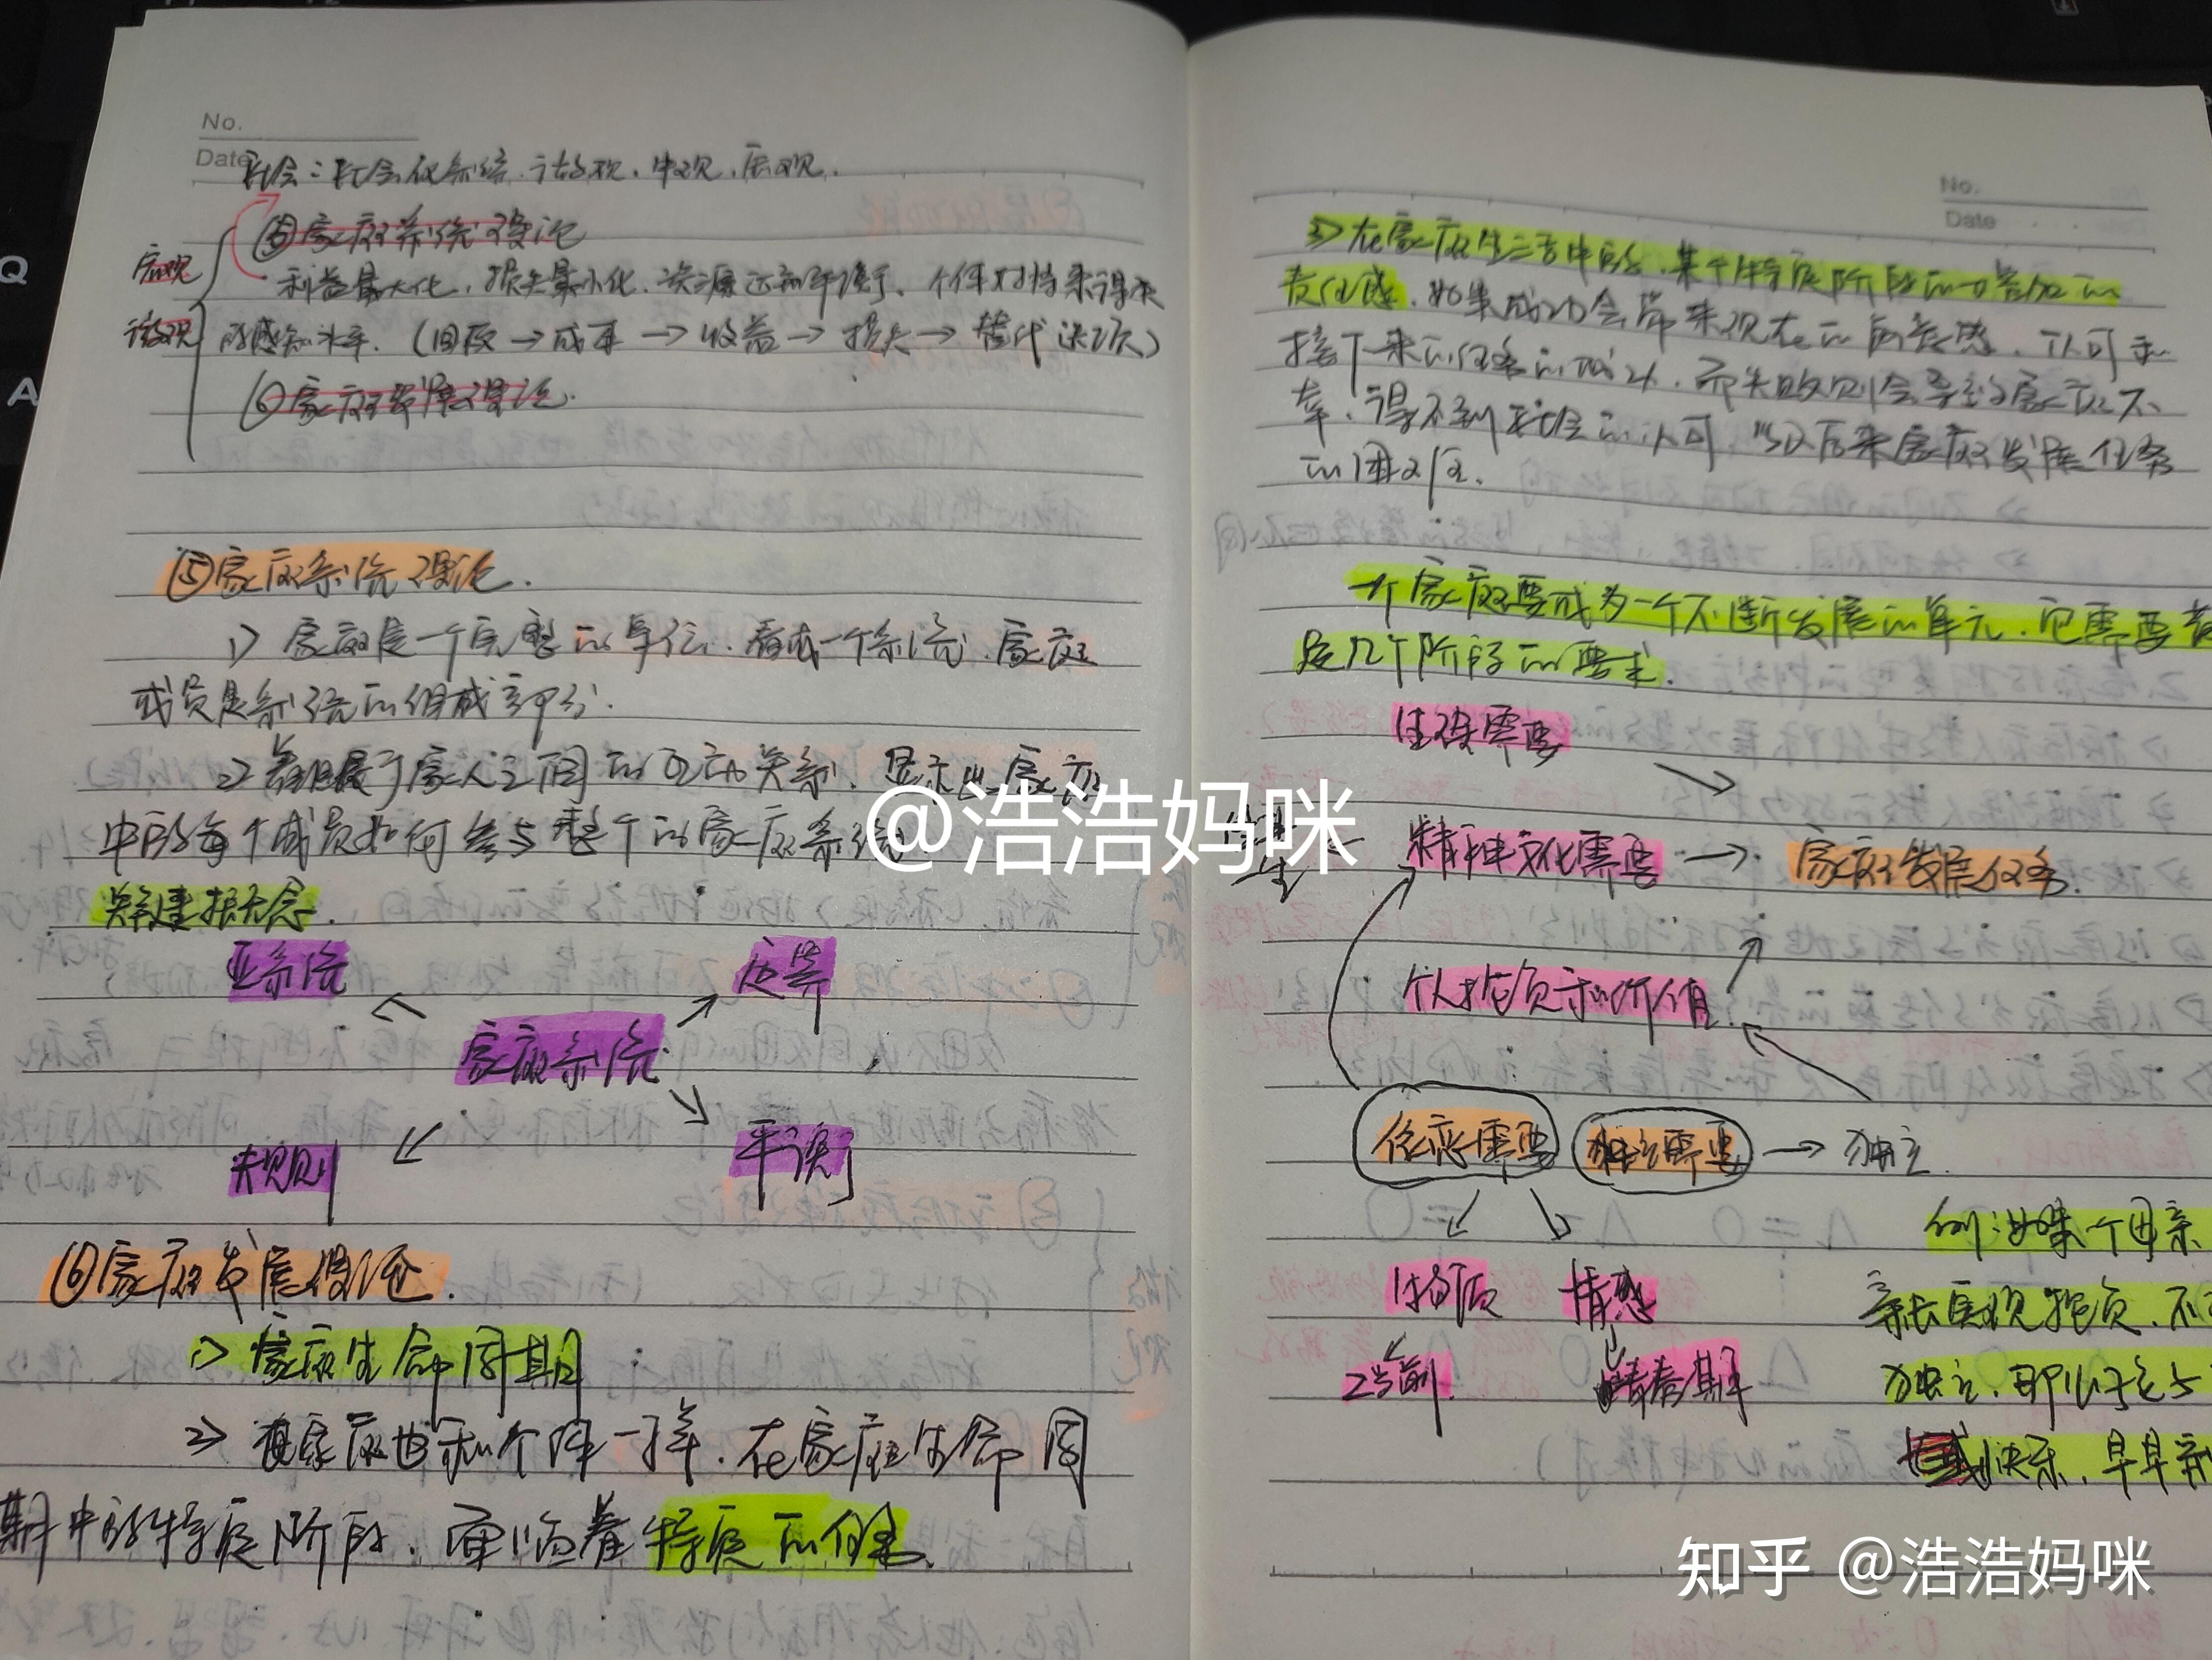 No.
Date
社会：社会化系统、微观、中观、宏观.
⑤家庭系统理论
宏观
利益最大化，损失最小化、资源达到平衡、个体对将来得来
微观
的感知水平.（回报→成本→收益→损失→替代选项）
⑥家庭发展理论.
⑤家庭系统理论.
1> 家庭是一个完整的单位、看成一个系统、家庭
成员是系统的组成部分.
2> 着眼于家人之间的互动关系. 显示出家庭
中的每个成员如何参与整个的家庭系统
关键概念.
亚系统
边界
家庭系统
规则
平衡
⑥家庭发展理论.
1> 家庭生命周期
2> 家庭也和个体一样. 在家庭生命周
期中的特定阶段. 面临着特定的任务.
No.
Date
3> 在家庭生活中的、某个特定阶段的日益增加的
责任感. 如果成功会带来现在的满意感、认可和
接下来的任务的成功. 而失败则会导致家庭不
幸、得不到社会的认可, 以及后来家庭发展任务
的困难.
一个家庭要成为一个不断发展的单元. 它需要满
足几个阶段的要求.
生理需要
精神文化需要 → 家庭发展任务.
个人抱负和价值
依恋需要 独立需要 → 独立.
物质 情感
之前.
青春期
例: 如果一个母亲
实现抱负. 不
独立. 那
快乐. 早早
@浩浩妈咪
知乎 @浩浩妈咪